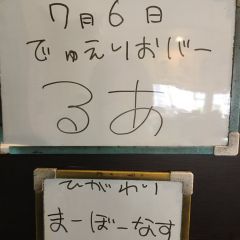 7月6日
でゅえりおバー
るあ
ひがわり
まーぼーなす